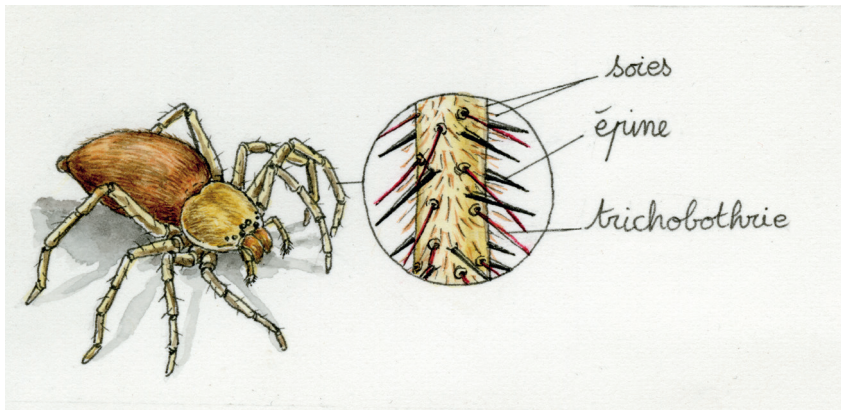 soies
épine
trichobothrie